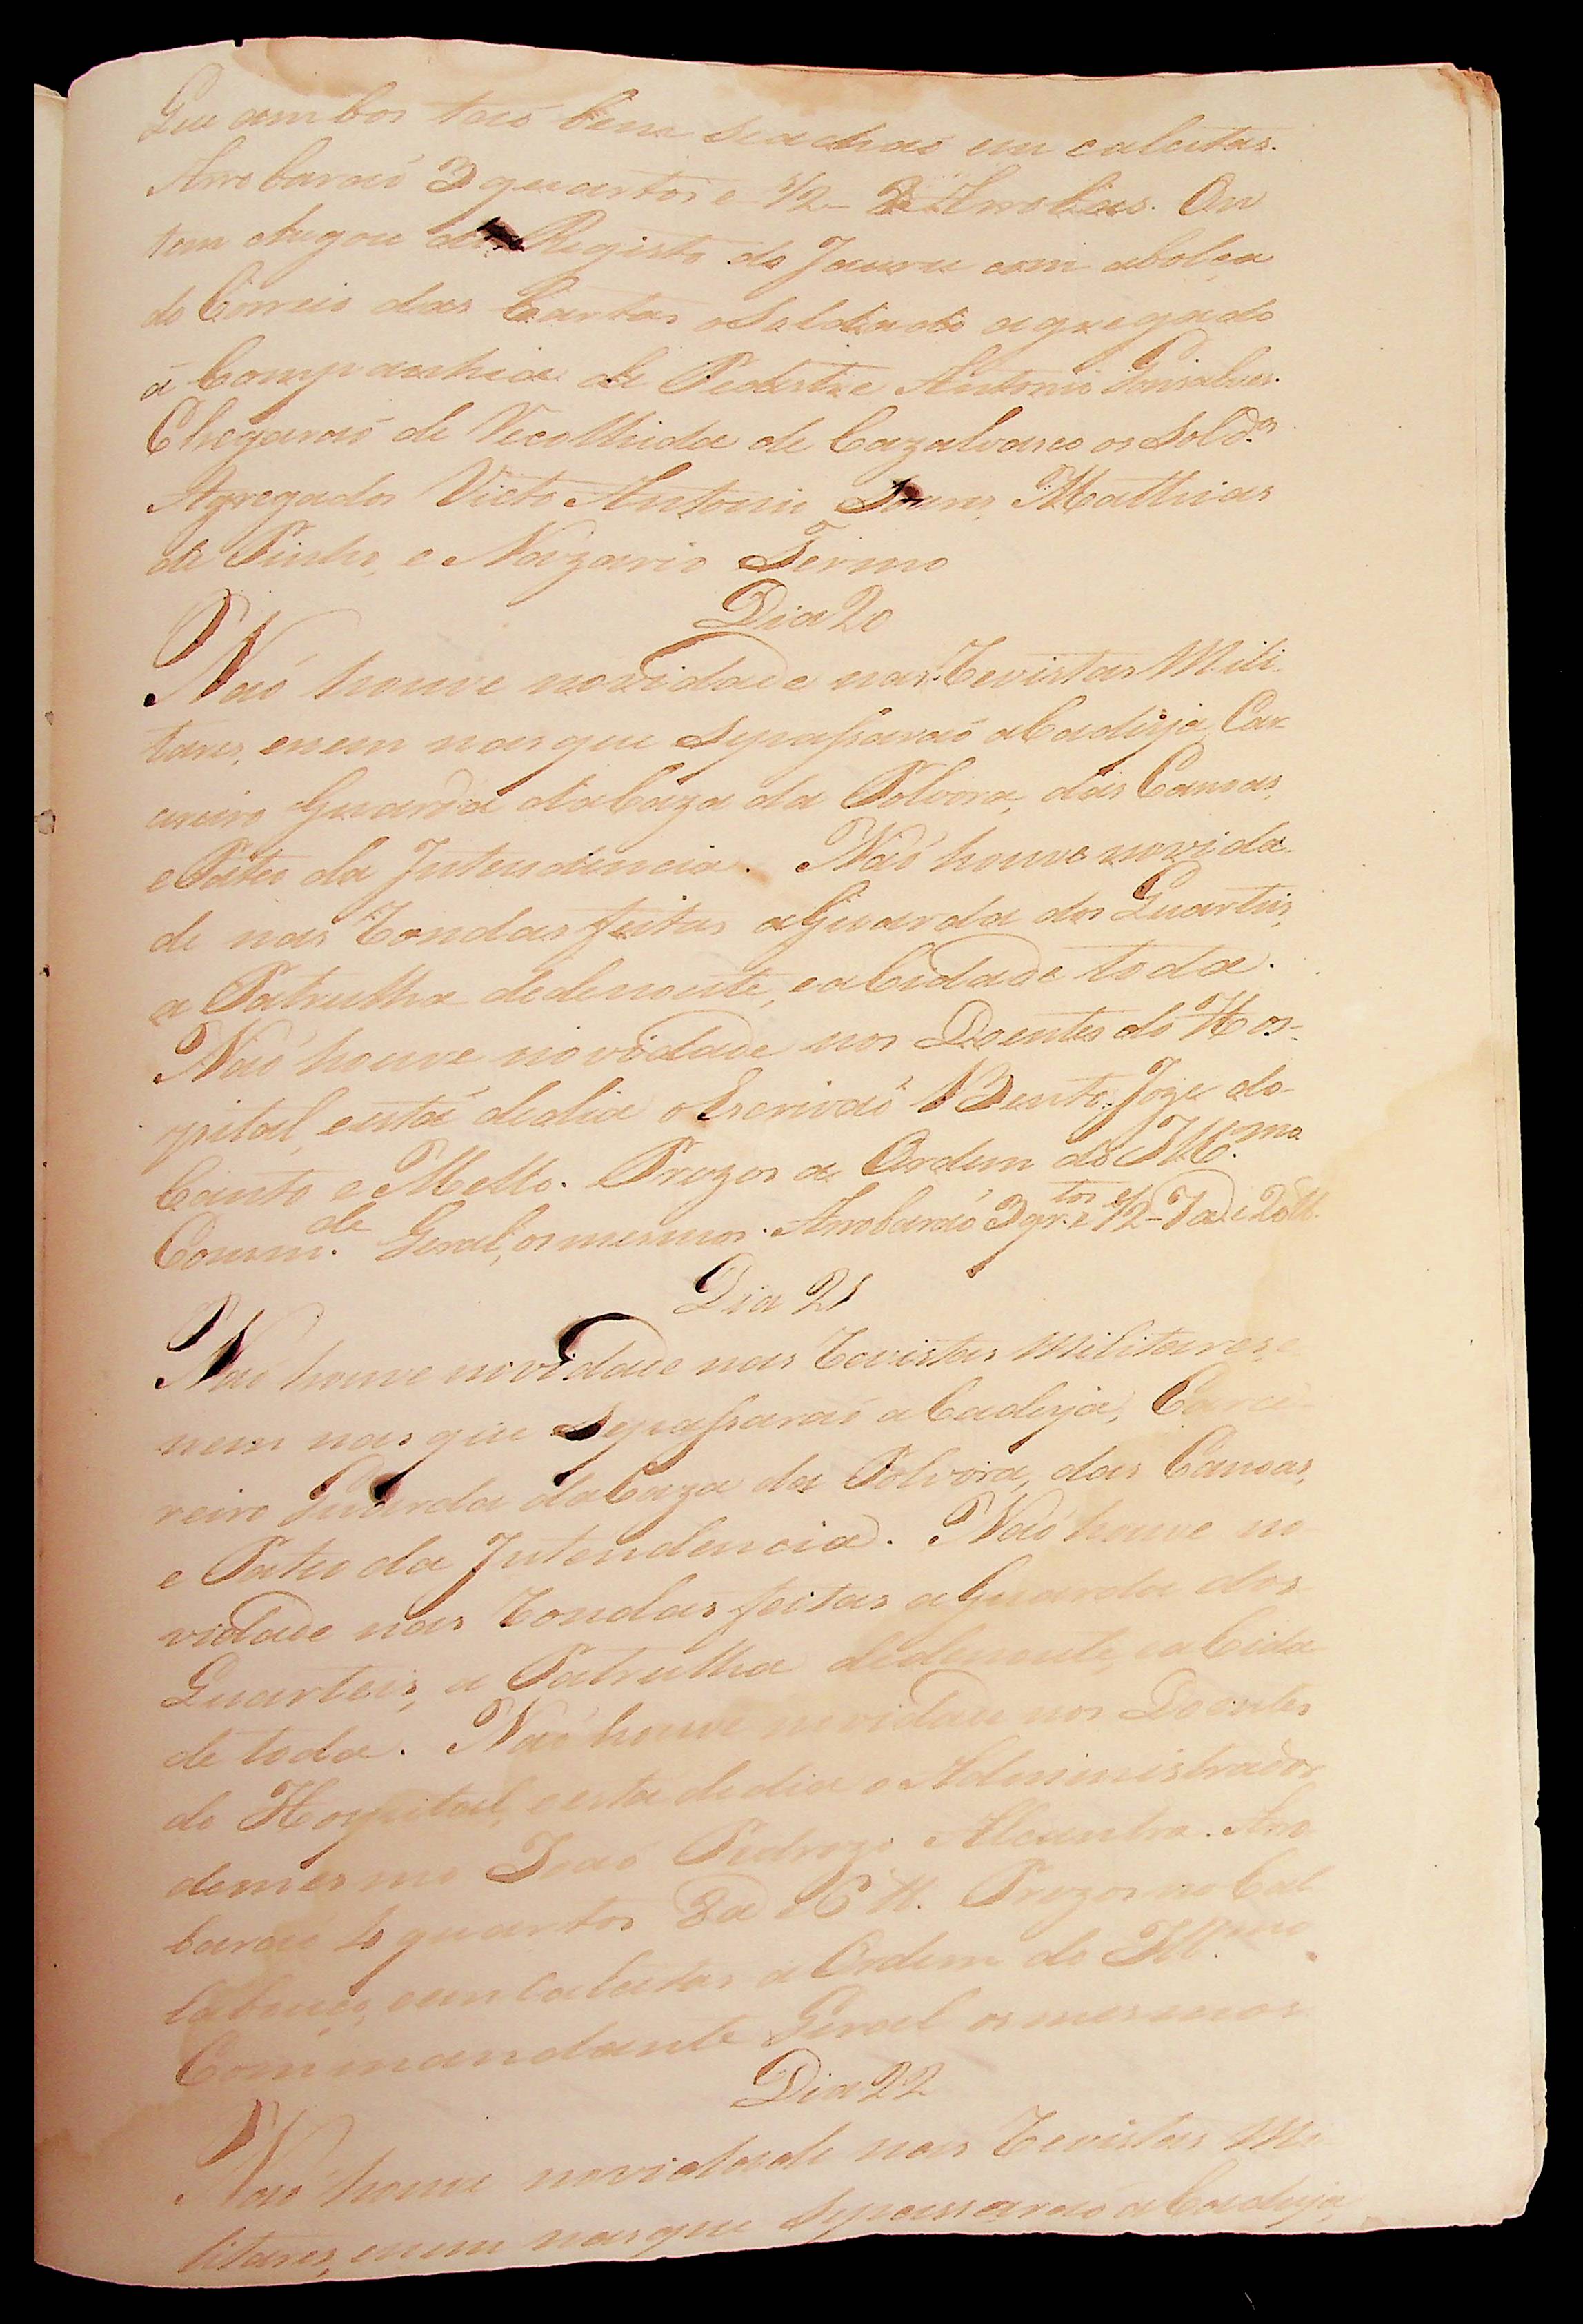 Que ambos taõ bem seachaõ em calcetas.
Arrobaraõ 3 quartos e 1/2 - 8 Arrobas. On
tem chegou do Registo do Jauru com abolça
do Correio das Cartas oSoldado agregado
á Companhia de Pedestre Antonio Gonsalves.
Chegaraõ de Recolhida de Cazalvasco os Sold.os
Agregados Victo Antonio Soares, Mathias
de Pinho, e Nazario Termo
Dia 20
Naõ houve novidade nas Revistas Mili
tares, enem nasque sepaſsaraõ aCadeija, Car
cereiro Guarda daCaza da Polvora, das Canoas,
ePateo da Intendencia. Naõ houve novida
de nas Rondas feitas aGuarda dos Quarteis,
a Patrulha dedenoite, eaCidade toda.
Naõ houve novidade nos Doentes do Hos-
pital, está dedia oEscrivaõ Bento Joze do
Canto e Mello. Prezos a Ordem do Ill.mo
Comm.de Geral, osmesmos. Arrobaraõ 3 qr.tos e 1/2 - 7 @ e 20 ℔.
Dia 21
Naõ houve novidade nas Revistas Militares, e
nem nas que sepaſsaraõ aCadeija, Carce
reiro Guarda daCaza da Polvora, das Canoas,
e Pateo da Intendencia. Naõ houve no
vidade nas Rondas feitas aGuarda dos
Quarteis, a Patrulha dedenoite, eaCida
de toda. Naõ houve novidade nos Doentes
do Hospital, esta dedia o Administrador
domesmo Joaõ Pedrozo Alcantra. Arro
baraõ 4 quartos 8 @ e 6 ℔. Prezos no Cal
labouço, em Calcetas a Ordem do Ill.mo
Commandante Geral osmesmos
Dia 22
Naõ houve novidade nas Revistas Mi
litares, enem nasque sepassaraõ aCadeija,